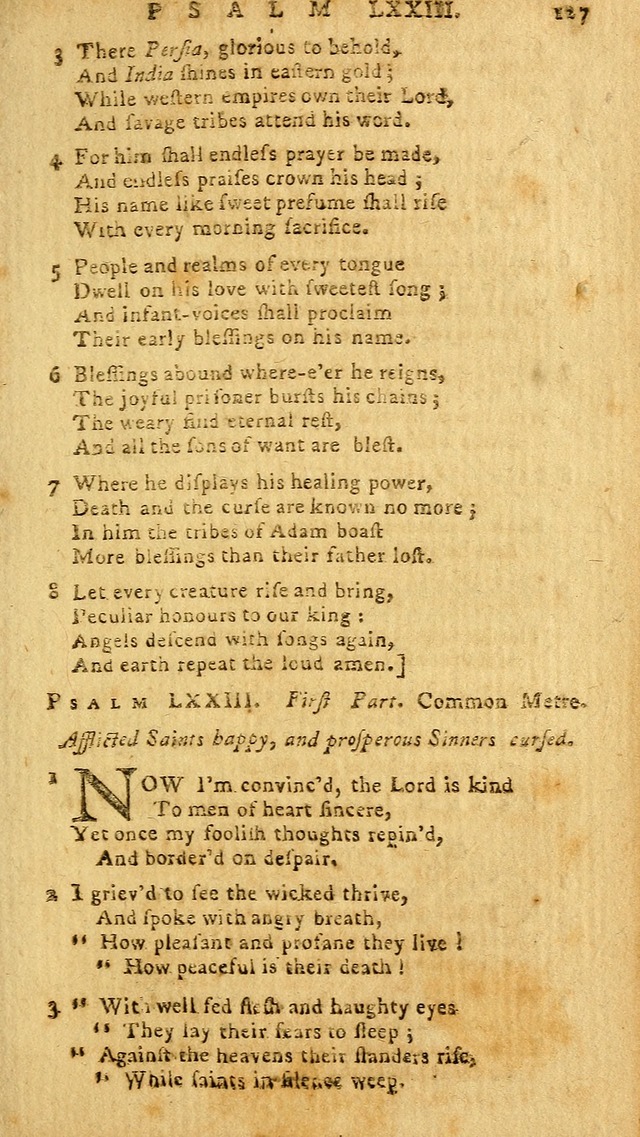 PSALM LXXIII. 127
3 There Perſia, glorious to behold,
And India ſhines in eaſtern gold;
While weſtern empires own their Lord,
And ſavage tribes attend his word.
4 For him ſhall endleſs prayer be made,
And endleſs praiſes crown his head;
His name like ſweet prefume ſhall riſe
With every morning ſacrifice.
5 People and realms of every tongue
Dwell on his love with ſweeteſt ſong;
And infant-voices ſhall proclaim
Their early bleſſings on his name.
6 Bleſſings abound where-e'er he reigns,
The joyful priſoner burſts his chains;
The weary find eternal reſt,
And all the ſons of want are bleſt.
7 Where he diſplays his healing power,
Death and the curſe are known no more;
In him the tribes of Adam boaſt
More bleſſings than their father loſt.
8 Let every creature riſe and bring,
Peculiar honours to our king:
Angels deſcend with ſongs again,
And earth repeat the loud amen.]
PSALM LXXIII. Firſt Part. Common Metre.
Afflicted Saints happy, and proſperous Sinners curſed.
1 NOW I'm convinc'd, the Lord is kind
To men of heart ſincere,
Yet once my fooliſh thoughts repin'd,
And border'd on deſpair.
2 I griev'd to ſee the wicked thrive,
And ſpoke with angry breath,
" How pleaſant and profane they live!
" How peaceful is their death!
3 " With well fed fleſh and haughty eyes
" They lay their fears to ſleep;
" Againſt the heavens their ſlanders riſe,
" While ſaints in ſilence weep.